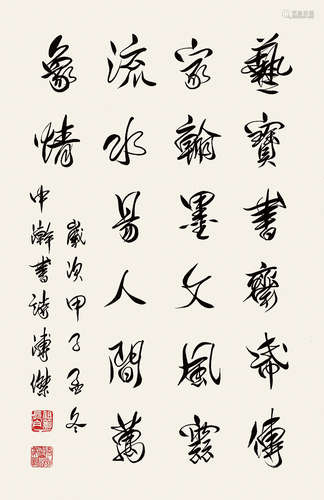 藝寶書齋傳
家翰墨文風
流水易人間萬
象情
歲次甲子孟冬
中瀚書詩溥傑